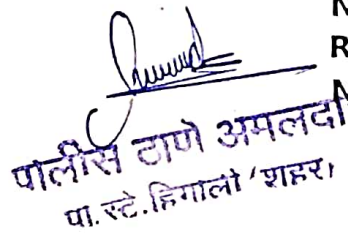 N
R
N
पोलीस ठाणे अमलदा
पा.स्टे.हिंगोली शहर।